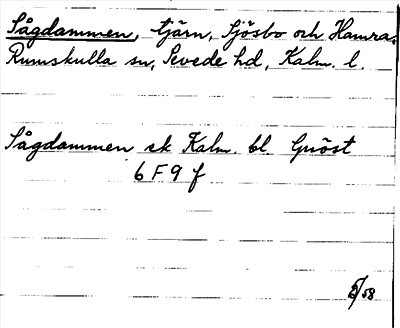 Sågdammen, tjärn, Sjösbo och Hamra.
Rumskulla sn, Sevede hd, Kalm. l.
Sågdammen ek Kalm. bl Gnöst
6 F 9 f
/58